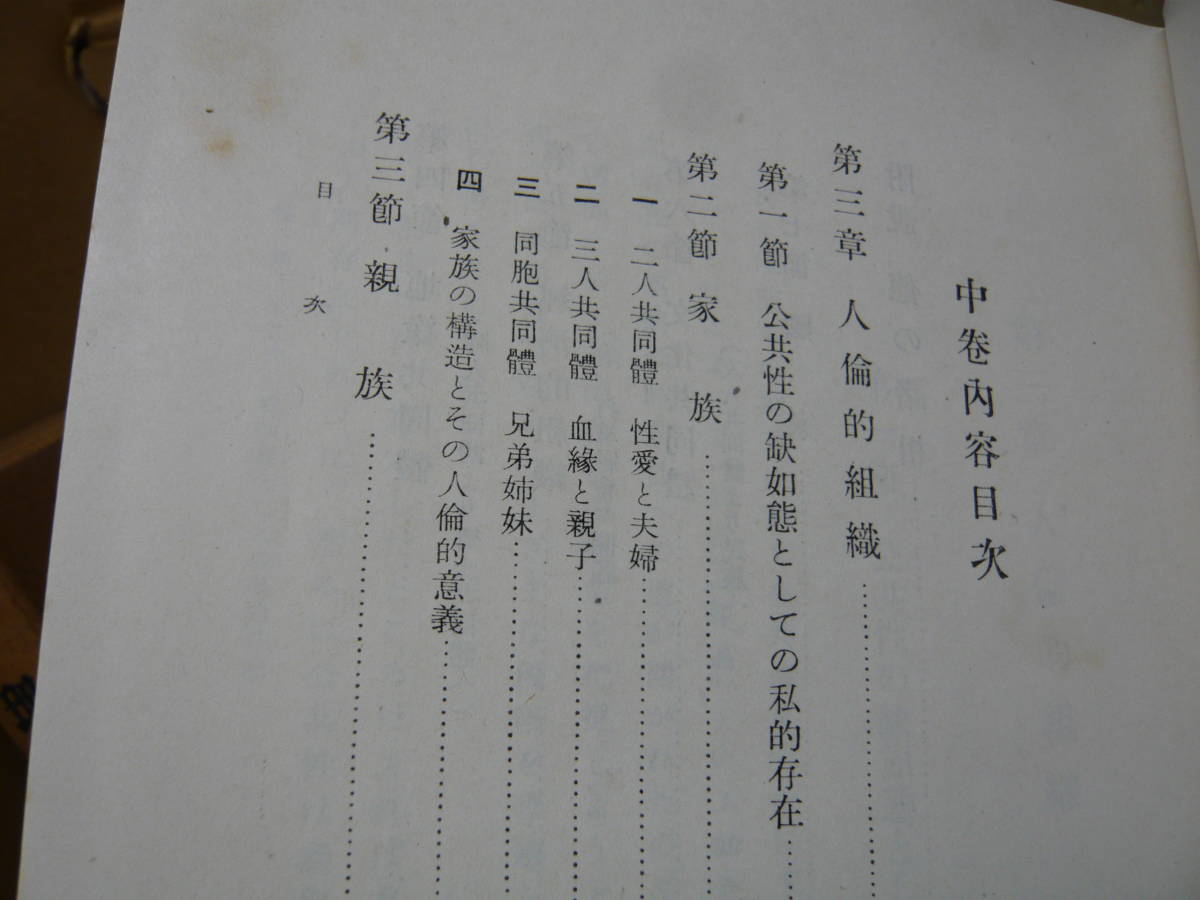 中卷內容目次
第三章 人倫的組織
第一節 公共性の缺如態としての私的存在
第二節 家族
一 二人共同體 性愛と夫婦
二 三人共同體 血緣と親子
三 同胞共同體 兄弟姉妹
四 家族の構造とその人倫的意義
第三節 親族
目次